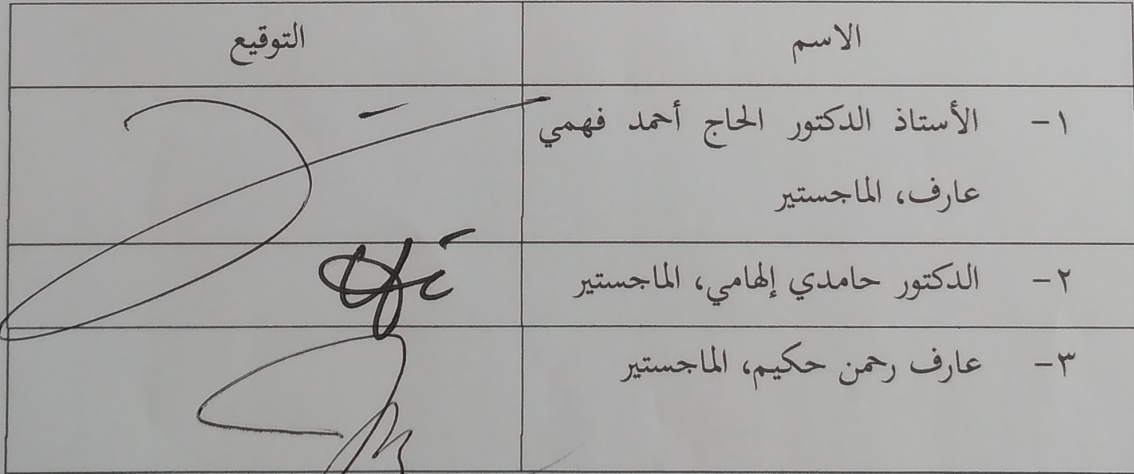 الاسم التوقيع
١- الأستاذ الدكتور الحاج أحمد فهمي
عارف، الماجستير
٢- الدكتور حامدي إلهامي، الماجستير
٣- عارف رحمن حكيم، الماجستير